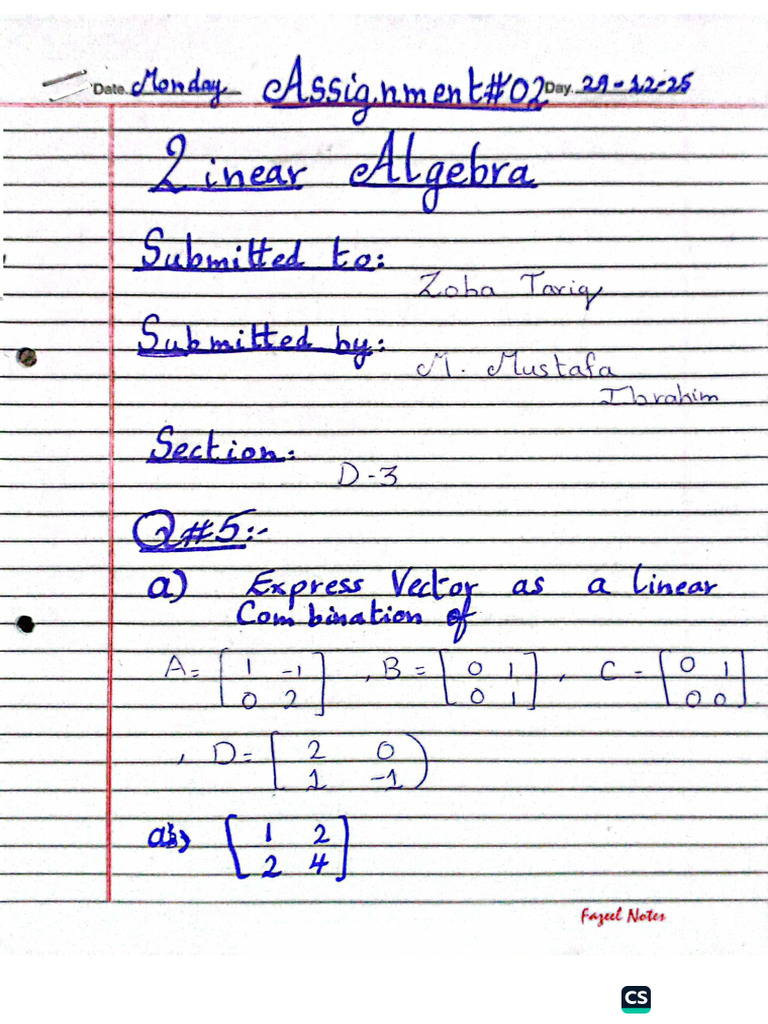 Date. Monday Assignment#02 Day. 29-12-25
Linear Algebra
Submitted to:
Zoha Tariq
Submitted by:
M. Mustafa
Ibrahim
Section:
D-3
Q#5:-
a) Express Vector as a linear
Combination of
A= [ 1 -1 ] , B = [ 0 1 ] , C = [ 0 1 ]
[ 0 2 ] [ 0 1 ] [ 0 0 ]
, D= [ 2 0 )
[ 1 -1 )
a) [ 1 2 ]
[ 2 4 ]
Fazeel Notes
CS